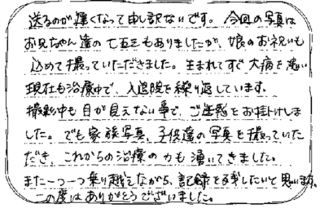 送るのが遅くなって申し訳ないです。今回の写真は
お兄ちゃん達の七五三もありましたが、娘のお祝いも
込めて撮っていただきました。生まれてすぐ大病を患い
現在も治療中で、入退院を繰り返しています。
撮影中も目が見えない事で、ご迷惑をお掛けしま
した。でも家族写真、子供達の写真を撮っていた
だき、これからの治療の力も湧いてきました。
また一つ一つ乗り越えながら、記録を残したいと思います。
この度はありがとうございました。